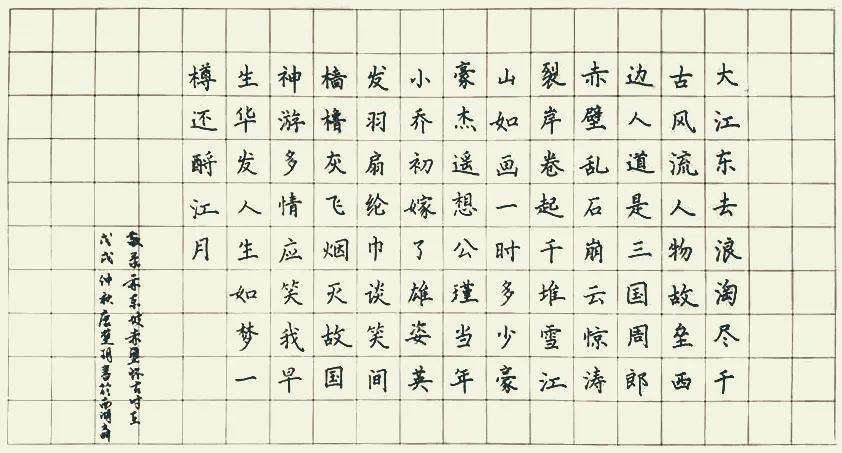 大江东去浪淘尽千
古风流人物故垒西
边人道是三国周郎
赤壁乱石崩云惊涛
裂岸卷起千堆雪江
山如画一时多少豪
豪杰遥想公瑾当年
小乔初嫁了雄姿英
发羽扇纶巾谈笑间
樯橹灰飞烟灭故国
神游多情应笑我早
生华发人生如梦一
樽还酹江月
敬录宋东坡赤壁怀古时在
戊戌仲秋唐明书於西湖